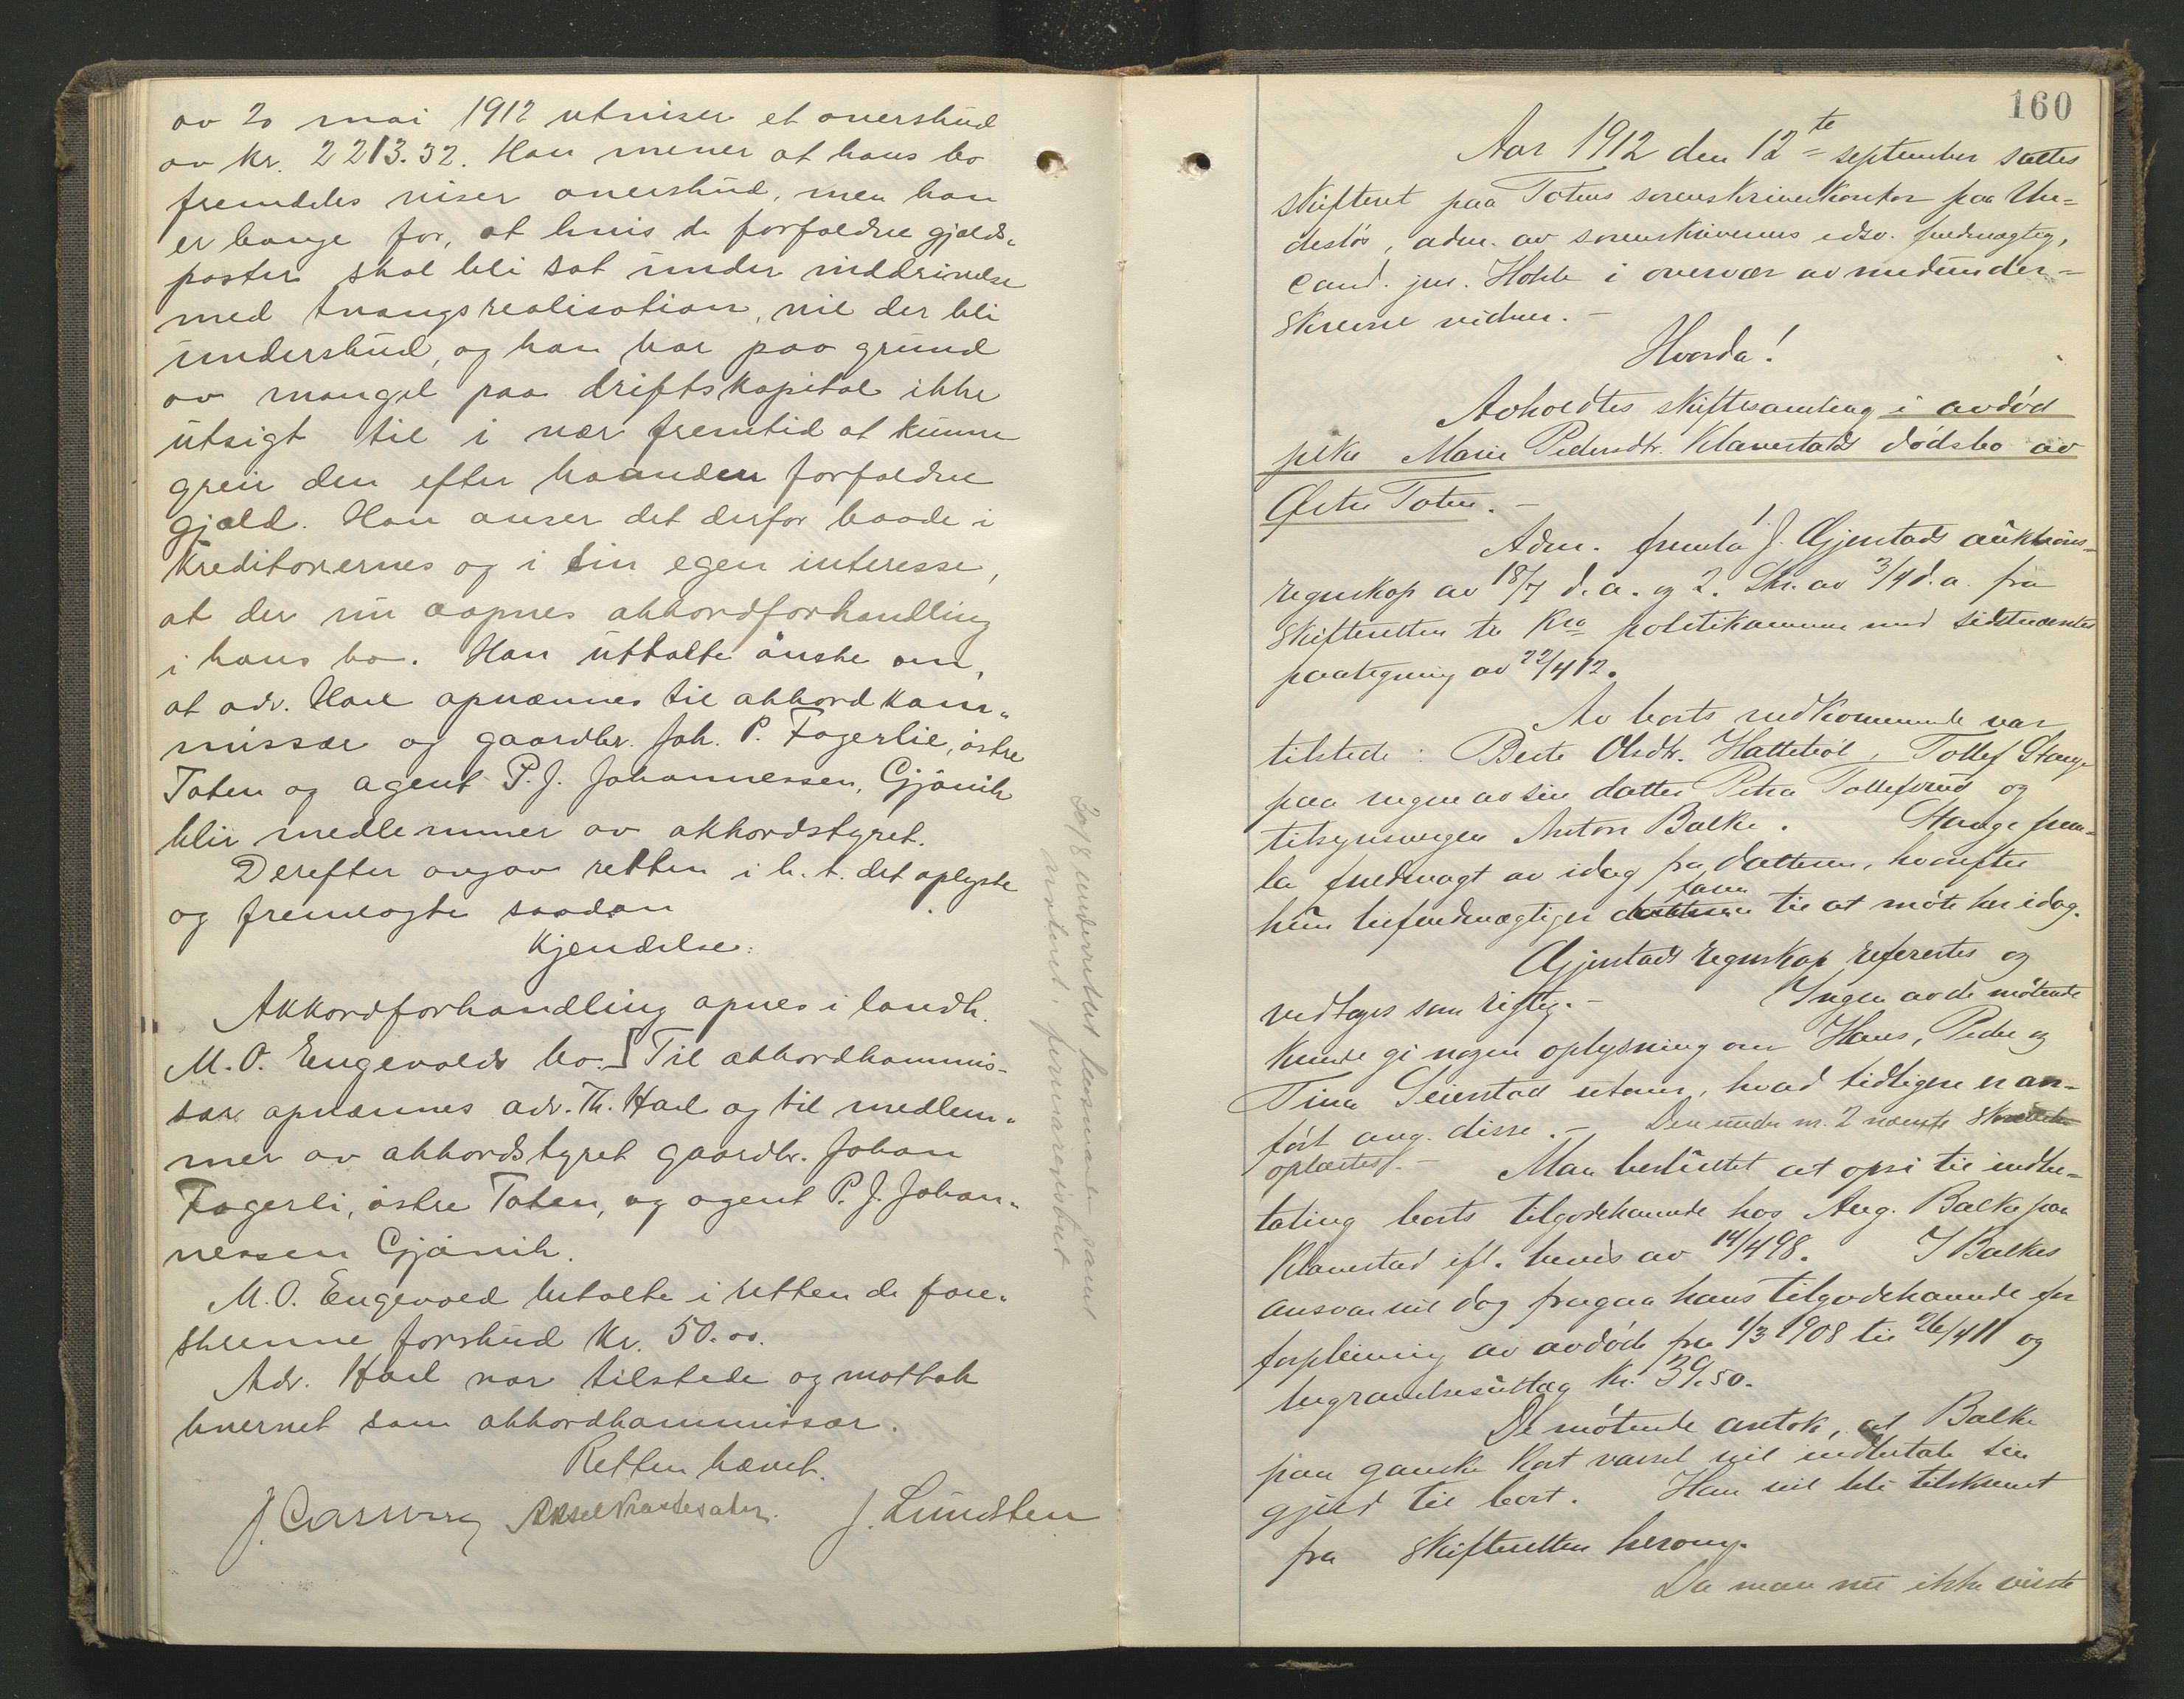 av 20 mai 1912 utviser et overskud
av kr. 2213.32. Han mener at hans bo
fremdeles viser overskud, men han
er bange for, at hvis de forfaldne gjælds„
poster skal bli sat under inddrivelse
med tvangsrealisation, vil der bli
underskud, og han har paa grund
av mangel paa driftskapital ikke
utsigt til i nær fremtid at kunne
greie den efter haanden forfaldne
gjæld. Han anser det derfor baade i
kreditorernes og i sin egen interesse,
at der nu aapnes akkordforhandling
i hans bo. Han uttalte ønske om,
at adv. Hael opnævnes til akkordkom„
missær og gaardbr. Joh. P. Fagerlie, østre
Toten og agent P. J. Johannessen, Gjøvik
blir medlemmer av akkordstyret.
Derefter avgav retten i h. t. det oplyste
og fremlagte saadan
Kjendelse:
Akkordforhandling apnes i landh.
M. O. Engevolds bo. Til akkordkommis-
sær opnævnes adv. Th. Hael og til medlem„
mer av akkordstyret gaardbr. Johan
Fagerli, østre Toten, og agent P. J. Johan„
nessen Gjøvik.
M. O. Engevold betalte i retten de fore„
skrevne forskud kr. 50.00.
Adv. Hael var tilstede og mottok
hvervet som akkordkommissær.
Retten hævet.
J. Lundsten
30/8 underrettet
160
Aar 1912 den 12te september sattes
skifteret paa Totens sorenskriverkontor paa Un=
destøs, adm. av sorenskriverens edsv. fuldmægtig,
cand. jur. Holste i overvær av medunder=
skrevne vidner. –
Hvorda!
Avholdtes skiftesamling i avdød
pike Marie Pedersdtr. Klavestads dødsbo av
Østre Toten. –
Adm. fremla 1. J. Gjestads auktions-
regnskap av 18/7 d. a. og 2. Skr. av 3/4 d. a. fra
skifteretten til Kra politikammer med sidstnævntes
paategning av 22/4 12.
Av boets vedkommende var
tilstede: Beate Olsdtr. Hattetøl, Tollef Stange
paa vegne av sin datter Petra Tollefsrud og
tilsynsverge Anton Balke. Stange frem-
la fuldmagt av idag fra datteren, hvorefter
hun befuldmægtiger faren til at møte her idag.
Gjestads regnskap refereres og
vedtages som rigtig. – Ingen av de møtende
kunde gi nogen oplysning om Hans, Peder og
Tina Seierstad utover, hvad tidligere er an-
ført ang. disse. – Den under nr. 2 nævnte skrivelse
oplæstes. – Man besluttet at opsi til indbe-
taling boets tilgodehavende hos Aug. Balke paa
Klavestad ifl. bevis av 14/4 98. I Balkes
ansvar vil dog fragaa hans tilgodehavende for
forpleining av avdøde fra 1/3 1908 til 26/4 11 og
begravelsesutlæg kr. 39.50.
De møtende antok, at Balke
paa ganske kort varsel vil indbetale sin
gjæld til boet. Han vil bli tilskrevet
fra skifteretten herom.
Da man nu ikke viste